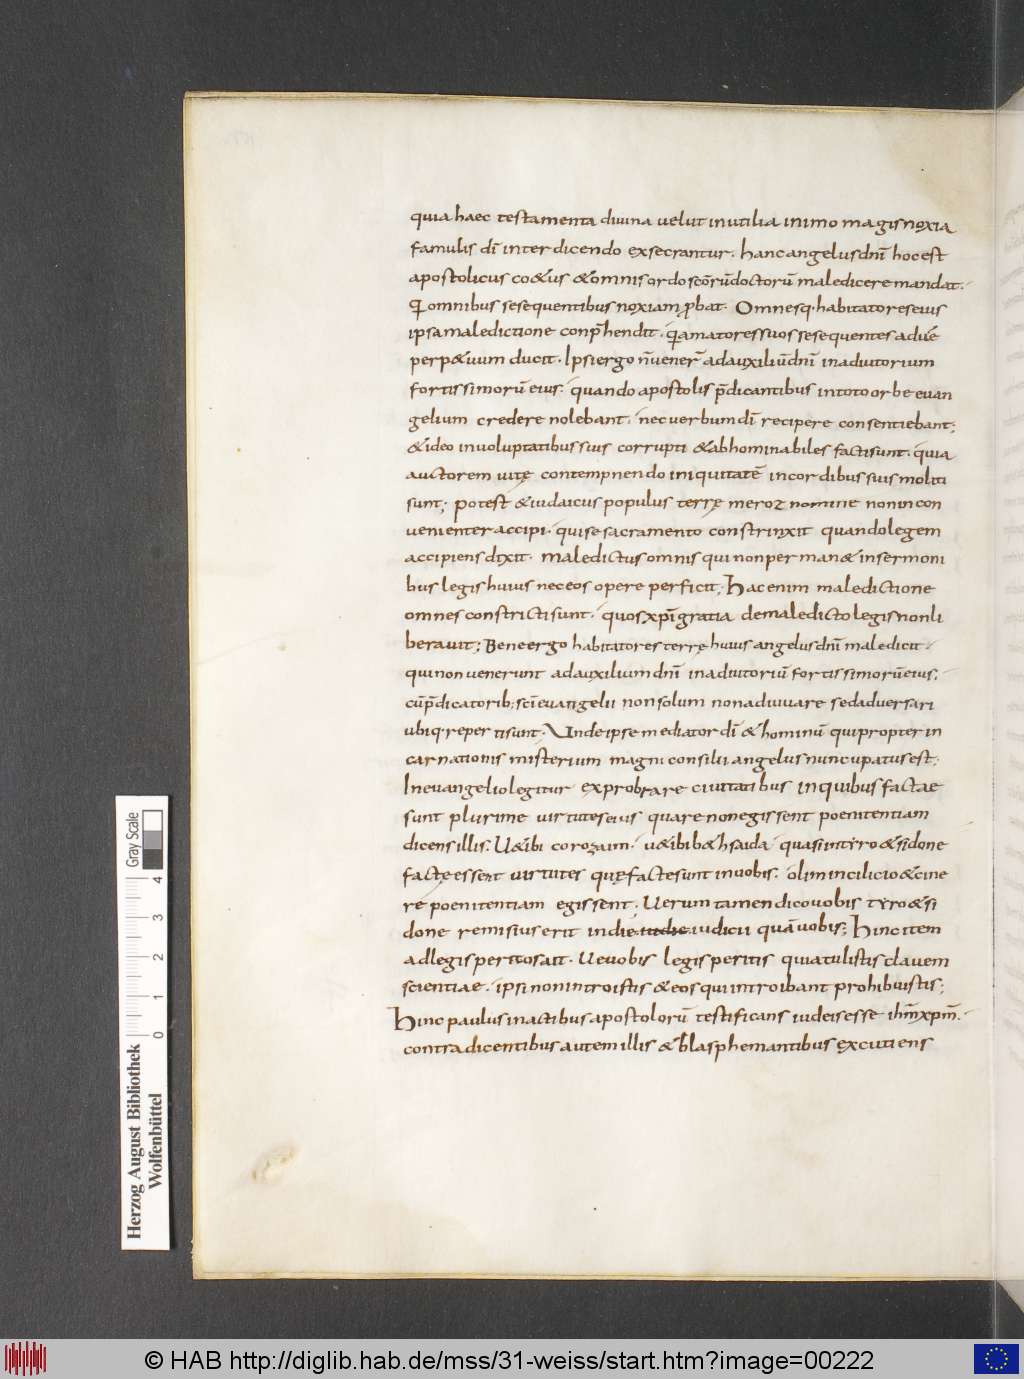 quia haec testamenta diuina uelut inutilia inimo magis noxia
famulis dī interdicendo exsecrantur. hanc angelus dnī hoc est
apostolicus coetus & omnis ordo scōrū doctorū maledicere mandat.
Qui omnibus se sequentibus noxiam probat. Omnesq. habitatores eius
ipsa maledictione conprehendit. quia amatores suos se sequentes ad
perp&uum ducit. Ipsi ergo ñ uener̄ ad auxiliū dnī in adiutorium
fortissimorū eius. quando apostolis p̄dicantibus in toto orbe euan
gelium credere nolebant. nec uerbum dī recipere consentiebant;
& ideo in uoluptatibus suis corrupti & abhominabiles facti sunt. quia
auctorem uitę contempnendo iniquitatē in cordibus suis moliti
sunt; Potest & iudaicus populus terrę meroz nomine non incon
uenienter accipi. qui se sacramento constrinxit quando legem
accipiens dixit. Maledictus omnis qui non perman& in sermoni
bus legis huius nec eos opere perficit; Hac enim maledictione
omnes constricti sunt. quos xpī gratia de maledicto legis non li
berauit; Bene ergo habitatores terrę huius angelus dnī maledicit.
qui non uenerunt ad auxilium dnī in adiutoriū fortissimorū eius;
cū p̄dicatorib; scī euangelii non solum non adiuuare sed aduersari
ubiq. reperti sunt. Unde ipse mediator dī & hominū qui propter in
carnationis misterium magni consilii angelus nuncupatus est;
In euangelio legitur exprobrare ciuitatibus in quibus factae
sunt plurime uirtutes eius quare non egissent poenitentiam
dicens illis. Uę tibi corozaim. uę tibi b&hsaida quia si in tyro & sidone
factę essent uirtutes quę facte sunt in uobis. olim in cilicio & cine
re poenitentiam egissent. Uerum tamen dico uobis tyro & si
done remisius erit in die in die iudicii quā uobis; Hinc item
ad legis peritos ait. Ue uobis legis peritis quia tulistis clauem
scientiae. ipsi non introistis & eos qui introibant prohibuistis;
Hinc paulus in actibus apostolorū testificans iudeis esse ihm̄ xpm̄.
contradicentibus autem illis & blasphemantibus excutiens
Herzog August Bibliothek
Wolfenbüttel
0 1 2 3 4
Gray Scale
© HAB http://diglib.hab.de/mss/31-weiss/start.htm?image=00222